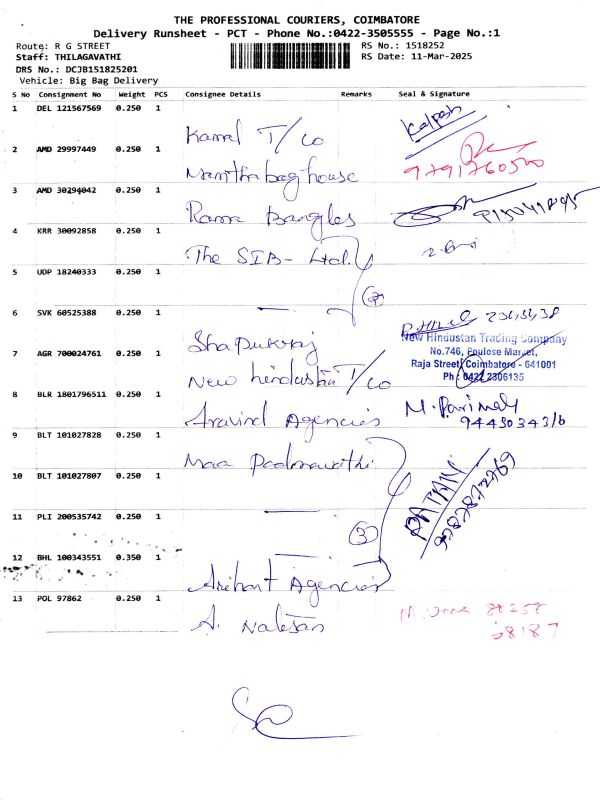 THE PROFESSIONAL COURIERS, COIMBATORE
Delivery Runsheet - PCT - Phone No.:0422-3505555 - Page No.:1
Route: R G STREET RS No.: 1518252
Staff: THILAGAVATHI RS Date: 11-Mar-2025
DRS No.: DCJB151825201
Vehicle: Big Bag Delivery
S No Consignment No Weight PCS Consignee Details Remarks Seal & Signature
1 DEL 121567569 0.250 1 Kamal T/Co Kalpesh
2 AMD 29997449 0.250 1 Namitha bag house 9791760500
3 AMD 30294042 0.250 1 Rama Bangles
4 KRR 30092858 0.250 1 The SIB- Ltd.
5 UDP 18240333 0.250 1 (2)
6 SVK 60525388 0.250 1 Shapukraj
New Hindustan Trading Company
No.746, Poulose Market,
Raja Street, Coimbatore - 641001
Ph : 0422 2306135
7 AGR 700024761 0.250 1 New hindustan T/Co
8 BLR 1801796511 0.250 1 Aravind Agencies M. Parimal
9 BLT 101027828 0.250 1 Maa Padmavathi
10 BLT 101027807 0.250 1 RATAN
11 PLI 200535742 0.250 1 (3)
12 BHL 100343551 0.350 1 Arihant Agencies
13 POL 97862 0.250 1 A. Natesan